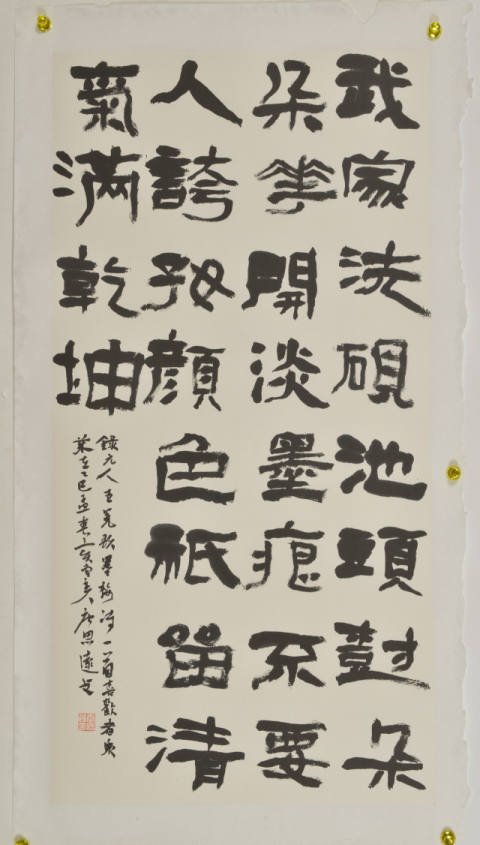 我家洗硯池頭樹朵
朵花開淡墨痕不要
人誇好顏色祇留清
氣滿乾坤
錄元人王冕詠墨梅詩一首喜歡者
乙巳孟春思遠